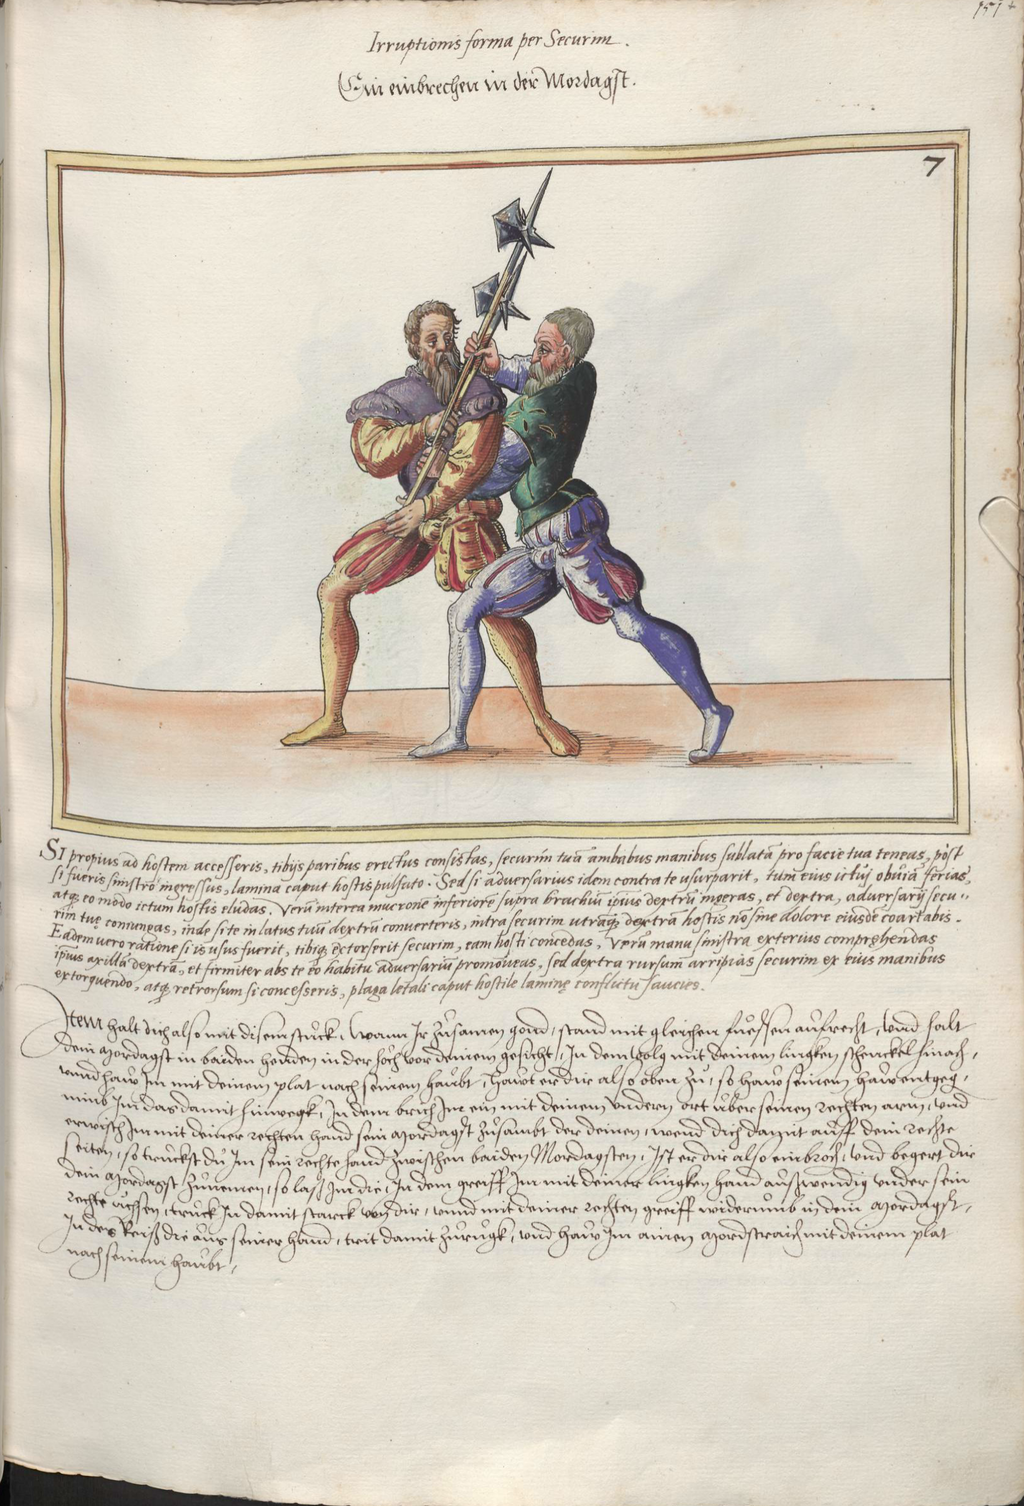 151
Irruptionis forma per Securim.
Ein einbrechen in der Mordagst.
7
SI propius ad hostem accesseris, tibijs paribus erectus consistas, securim tuā ambabus manibus sublatā pro facie tua teneas, pòst
si fueris sinistro ingressus, lamina caput hostis pulsato. Sed si adversarius idem contra te usurparit, tum eius ictuj obviā ferias,
atq eo modo ictum hostis eludas. Verū interea mucrone inferiore supra brachiū ipsius dextrū ingeras, et dextra, adversarij secu-
rim tuę coniungas, inde si te in latus tuū dextrū converteris, intra securim utraq dextrā hostis nō sine dolore eiusdē coartabis.
Eadem vero ratione si is usus fuerit, tibiq extorserit securim, eam hosti concedas, verū manu sinistra exterius comprehendas
ipsius axillā dextrā, et firmiter abs te eo habitu adversariū promoveas, sed dextra rursum arripias securim ex eius manibus
extorquendo, atq retrorsum si concesseris, plaga letali caput hostile laminę conflictu saucies.
Item halt dich also mit disem stuckh, Wann Ir zusamen gond, stand mit gleichen fuessen aufrecht, vnd halt
dein Mordagst in baiden henden in der hoch vor deinem gesicht, In dem volg mit deinem lingken schenckel hinach,
vnnd haw Im mit deinem plat nach seinem haubt, hawt er dir also oben zu, so haw seinem haw entgeg,
nimb Im das damit hinwegk, In dem brich Im ein mit deinem vndern ort uber seinen rechten arm, vnd
erwisch Im mit deiner rechten hand sein Mordagst zusambt der deinen, wend dich damit auff dein rechte
seiten, so truckst du Im sein rechte hand zwischen baiden Mordagsten, Ist er dir also einbroch, vnd begert dir
dein Mordagst zunemen, so lass Im die, In dem greiff Im mit deiner lingken hand auswendig vnder sein
rechte uchsen, truck In damit starck von dir, vnnd mit deiner rechten greiff widerumb in dein Mordagst,
In des Reiss die aus seiner hand, trit damit zurugk, vnd haw Im ainen Mordstraich mit deinem plat
nach seinem haubt,